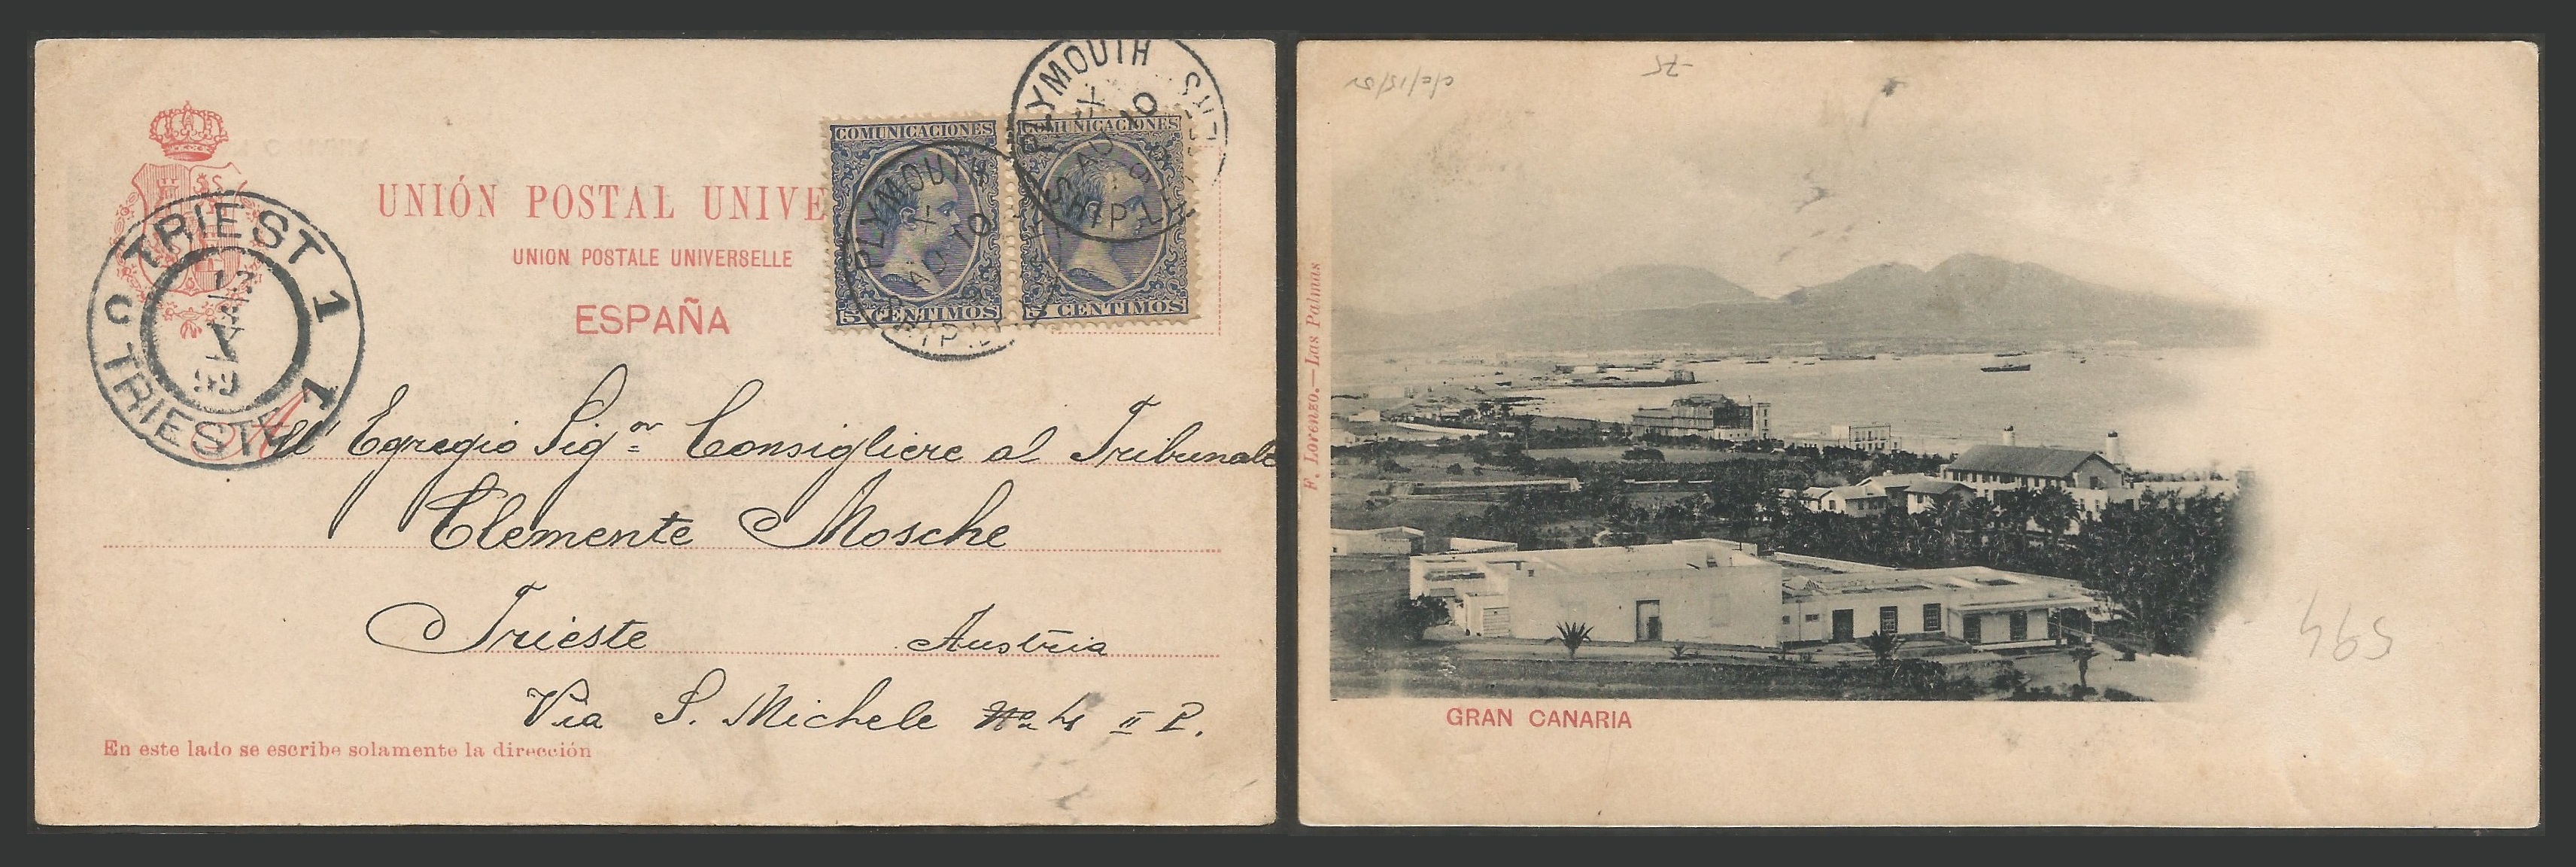 UNIÓN POSTAL UNIVE
UNION POSTALE UNIVERSELLE
ESPAÑA
COMUNICACIONES
5 CENTIMOS
COMUNICACIONES
5 CENTIMOS
PLYMOUTH
X
AU 10
SHIP LE
PLYMOUTH
X
AU 10
SHIP
TRIEST 1
TRIESTE 1
C
X
99
All' Egregio Sigor Consigliere al Tribunale
Clemente Mosche
Trieste Austria
Via S. Michele II P.
En este lado se escribe solamente la dirección
F. Lorenzo.—Las Palmas
GRAN CANARIA